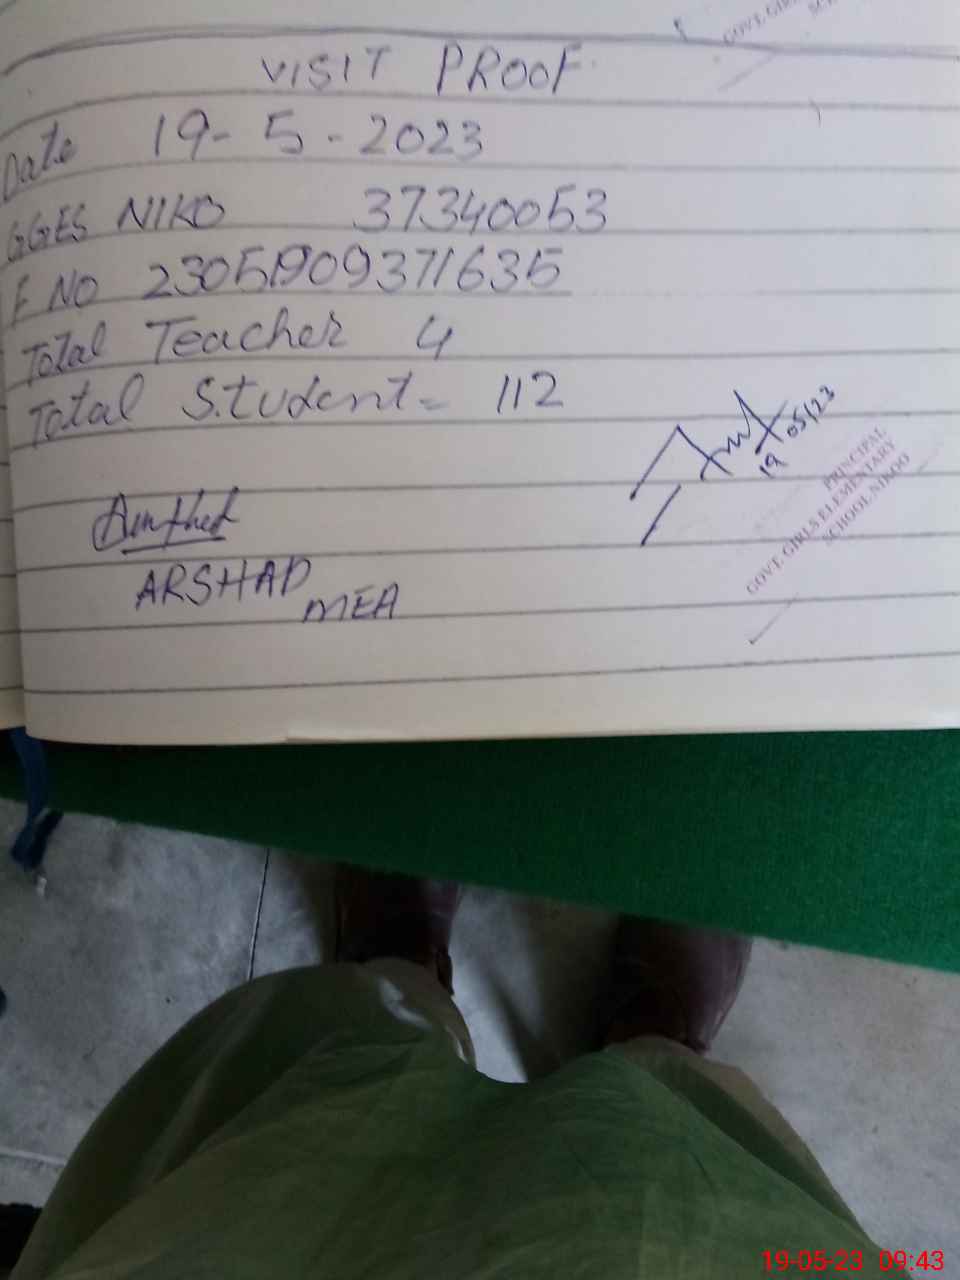 GOVT. GIRLS
VISIT PROOF
Date 19-5-2023
GGES NIKO 37340053
F NO 2305190937 1635
Total Teacher 4
Total Student = 112
19 05/23
PRINCIPAL
GOVT. GIRLS ELEMENTARY
SCHOOL NIKOO
ARSHAD
MEA
19-05-23 09:43